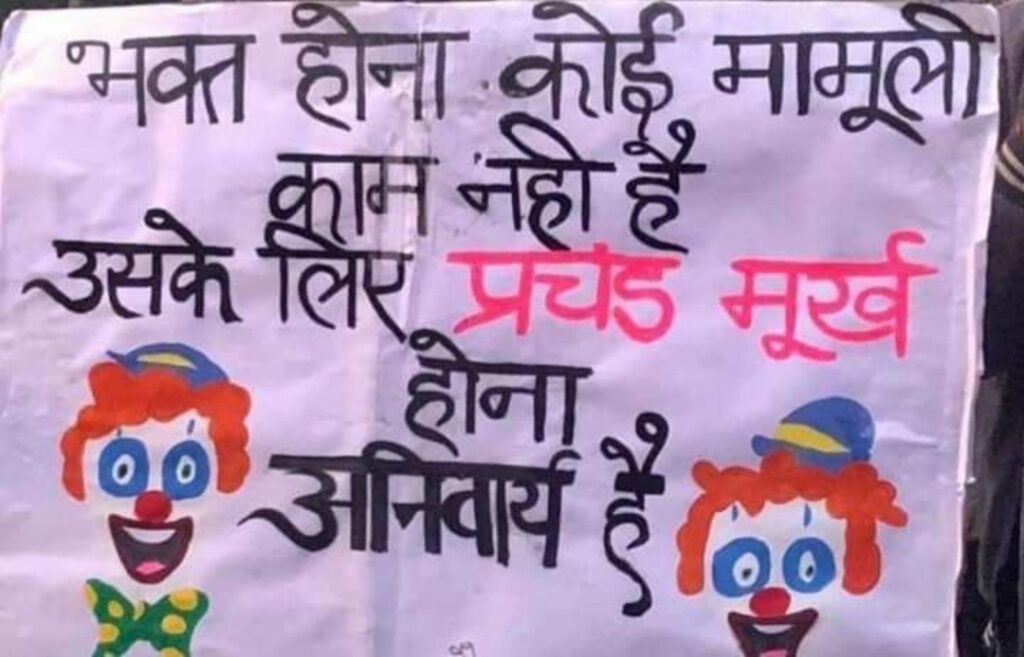 भक्त होना कोई मामूली
काम नही है
उसके लिए प्रचंड मूर्ख
होना
अनिवार्य है